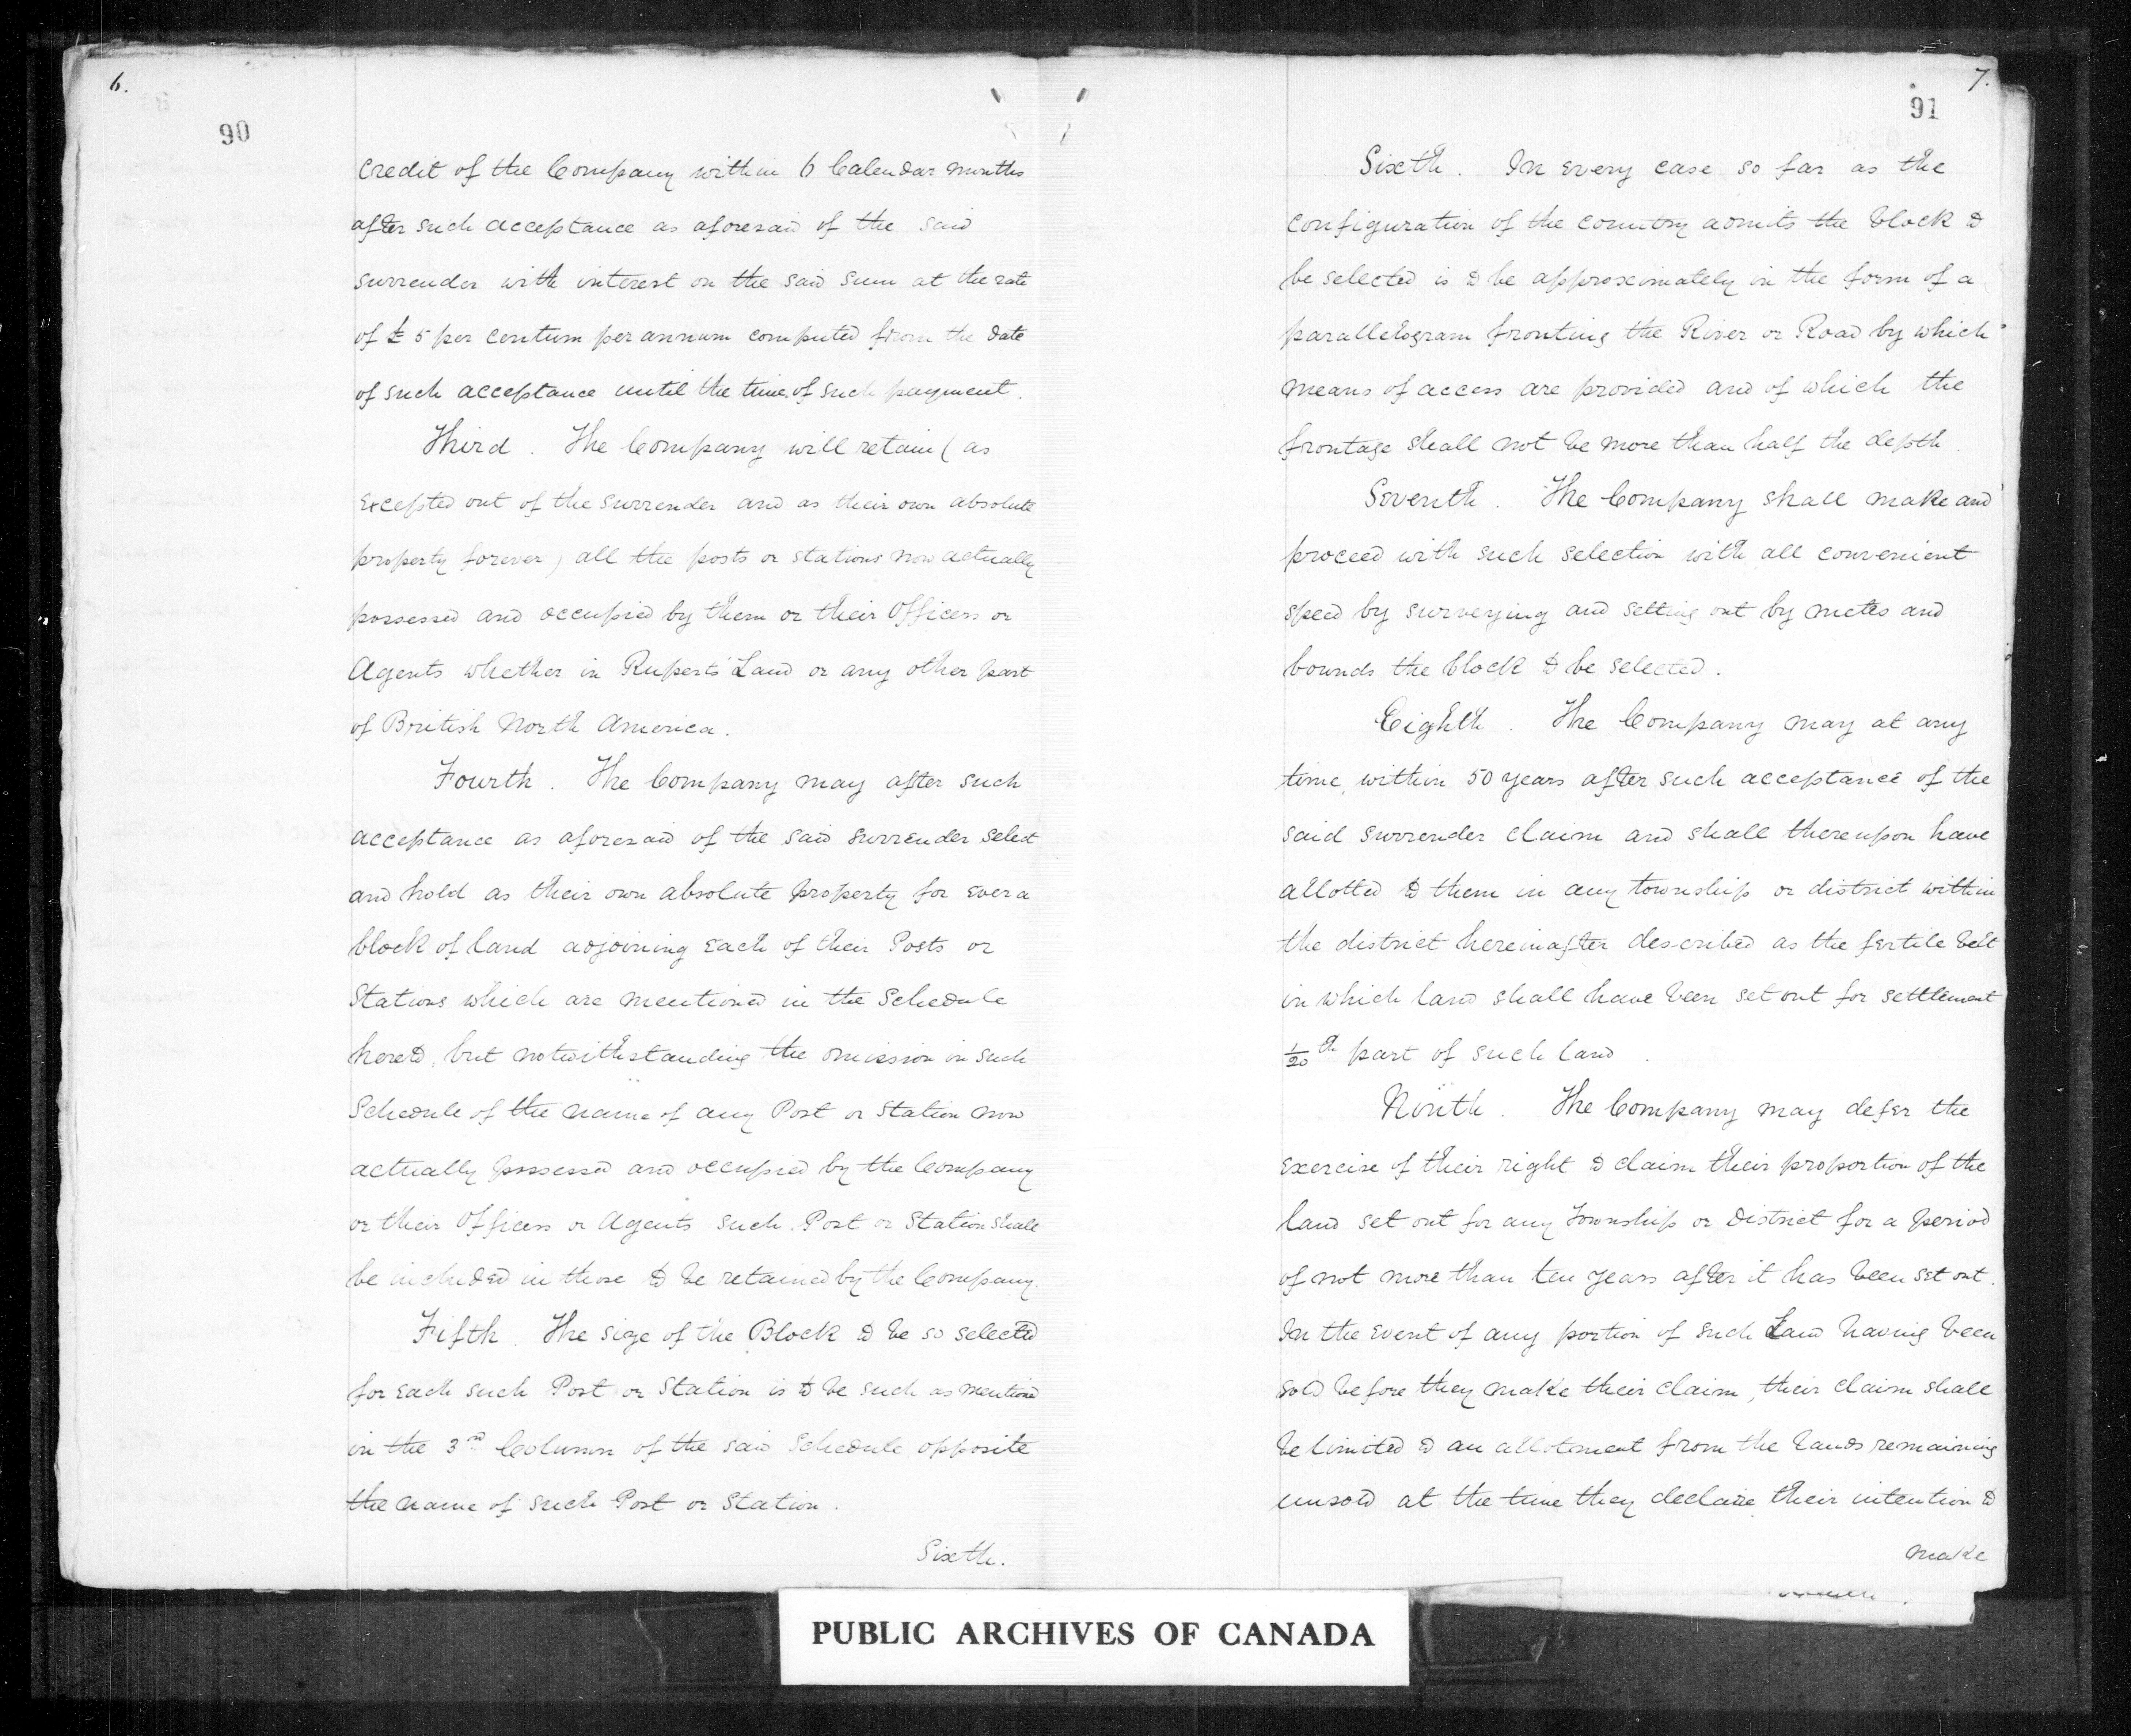 6.
90
Credit of the Company within 6 Calendar months
after such acceptance as aforesaid of the said
surrender with interest on the said sum at the rate
of £ 5 per centum per annum computed from the date
of such acceptance until the time of such payment.
Third. The Company will retain (as
excepted out of the surrender and as their own absolute
property forever) all the posts or stations now actually
possessed and occupied by them or their Officers or
Agents whether in Ruperts Land or any other part
of British North America.
Fourth. The Company may after such
acceptance as aforesaid of the said surrender select
and hold as their own absolute property for ever a
block of land adjoining each of their Posts or
Stations which are mentioned in the Schedule
hereto, but notwithstanding the omission in such
Schedule of the name of any Post or Station now
actually possessed and occupied by the Company
or their Officers or Agents such Post or Station shall
be included in those to be retained by the Company.
Fifth. The size of the Block to be so selected
for each such Post or Station is to be such as mentioned
in the 3rd Column of the said Schedule opposite
the name of such Post or Station.
Sixth.
7.
91
Sixth. In every case so far as the
configuration of the country admits the block to
be selected is to be approximately in the form of a
parallelogram fronting the River or Road by which
means of access are provided and of which the
frontage shall not be more than half the depth.
Seventh. The Company shall make and
proceed with such selection with all convenient
speed by surveying and setting out by metes and
bounds the block to be selected.
Eighth. The Company may at any
time, within 50 years after such acceptance of the
said surrender claim and shall thereupon have
allotted to them in any township or district within
the district hereinafter described as the fertile belt
in which land shall have been set out for settlement
1/20th part of such land.
Ninth. The Company may defer the
exercise of their right to claim their proportion of the
land set out for any Township or District for a period
of not more than ten years after it has been set out.
In the event of any portion of such Land having been
sold before they make their claim, their claim shall
be limited to an allotment from the lands remaining
unsold at the time they declare their intention to
make
PUBLIC ARCHIVES OF CANADA